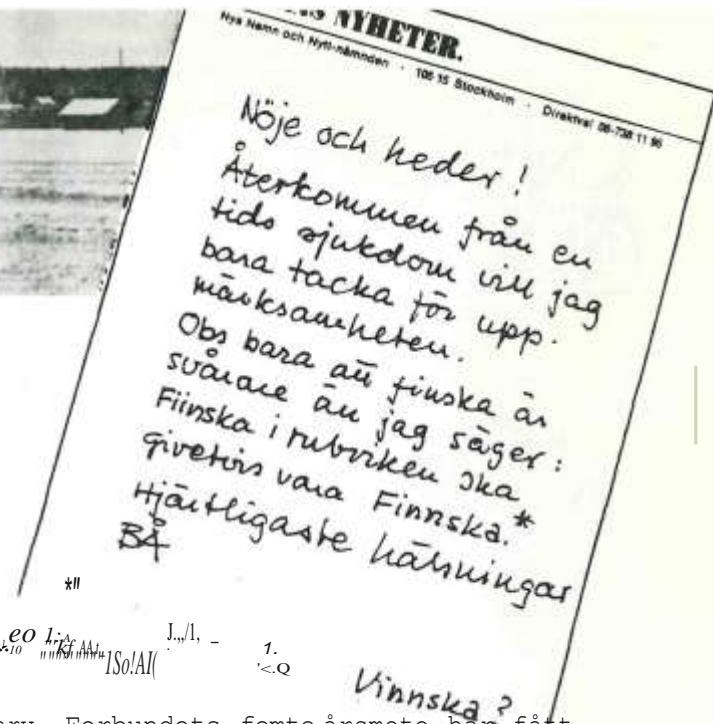 NYHETER.
Nya Namn och Nytt-nämnden · 105 15 Stockholm · Direktval 08-738 11 95
Nöje och heder!
Återkommen från en
tids sjukdom vill jag
bara tacka för upp-
märksamheten.
Obs bara att finska är
svårare än jag säger:
Fiinska i rubriken ska
givetvis vara Finnska.*
Hjärtligaste hälsningar
BÅ
*"
Vinnska?
Forbundets femte årsmote har fått